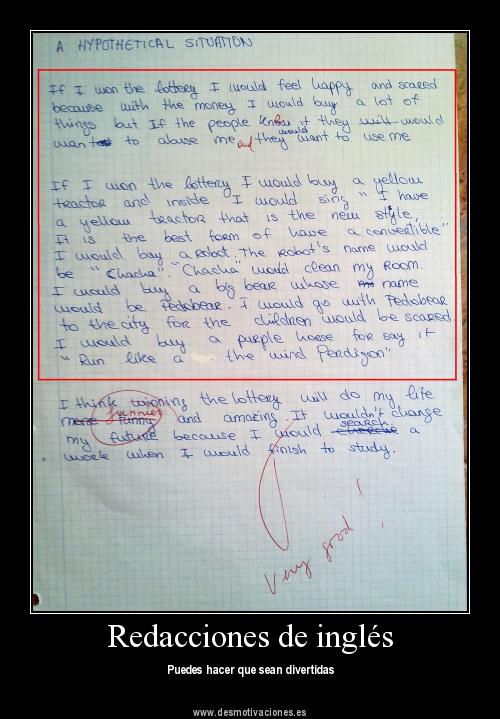 A HYPOTHETICAL SITUATION
If I won the lottery I would feel happy and scared
because with the money I would buy a lot of
things but If the people know it they will would
want to abuse me and they would want to use me
If I won the lottery I would buy a yellow
tractor and inside I would sing " I have
a yellow tractor that is the new style,
It is the best form of have a convertible"
I would buy a robot. The Robot's name would
be "Chacha". "Chacha" would clean my Room.
I would buy a big bear whose name
would be Pedobear. I would go with Pedobear
to the city for the children would be scared.
I would buy a purple horse for say it
"Run like a the wind Perdigon"
I think winning the lottery will do my life
more funny funnier and amazing. It wouldn't change
my future because I would search a
work when I would finish to study.
Very good!
Redacciones de inglés
Puedes hacer que sean divertidas
www.desmotivaciones.es